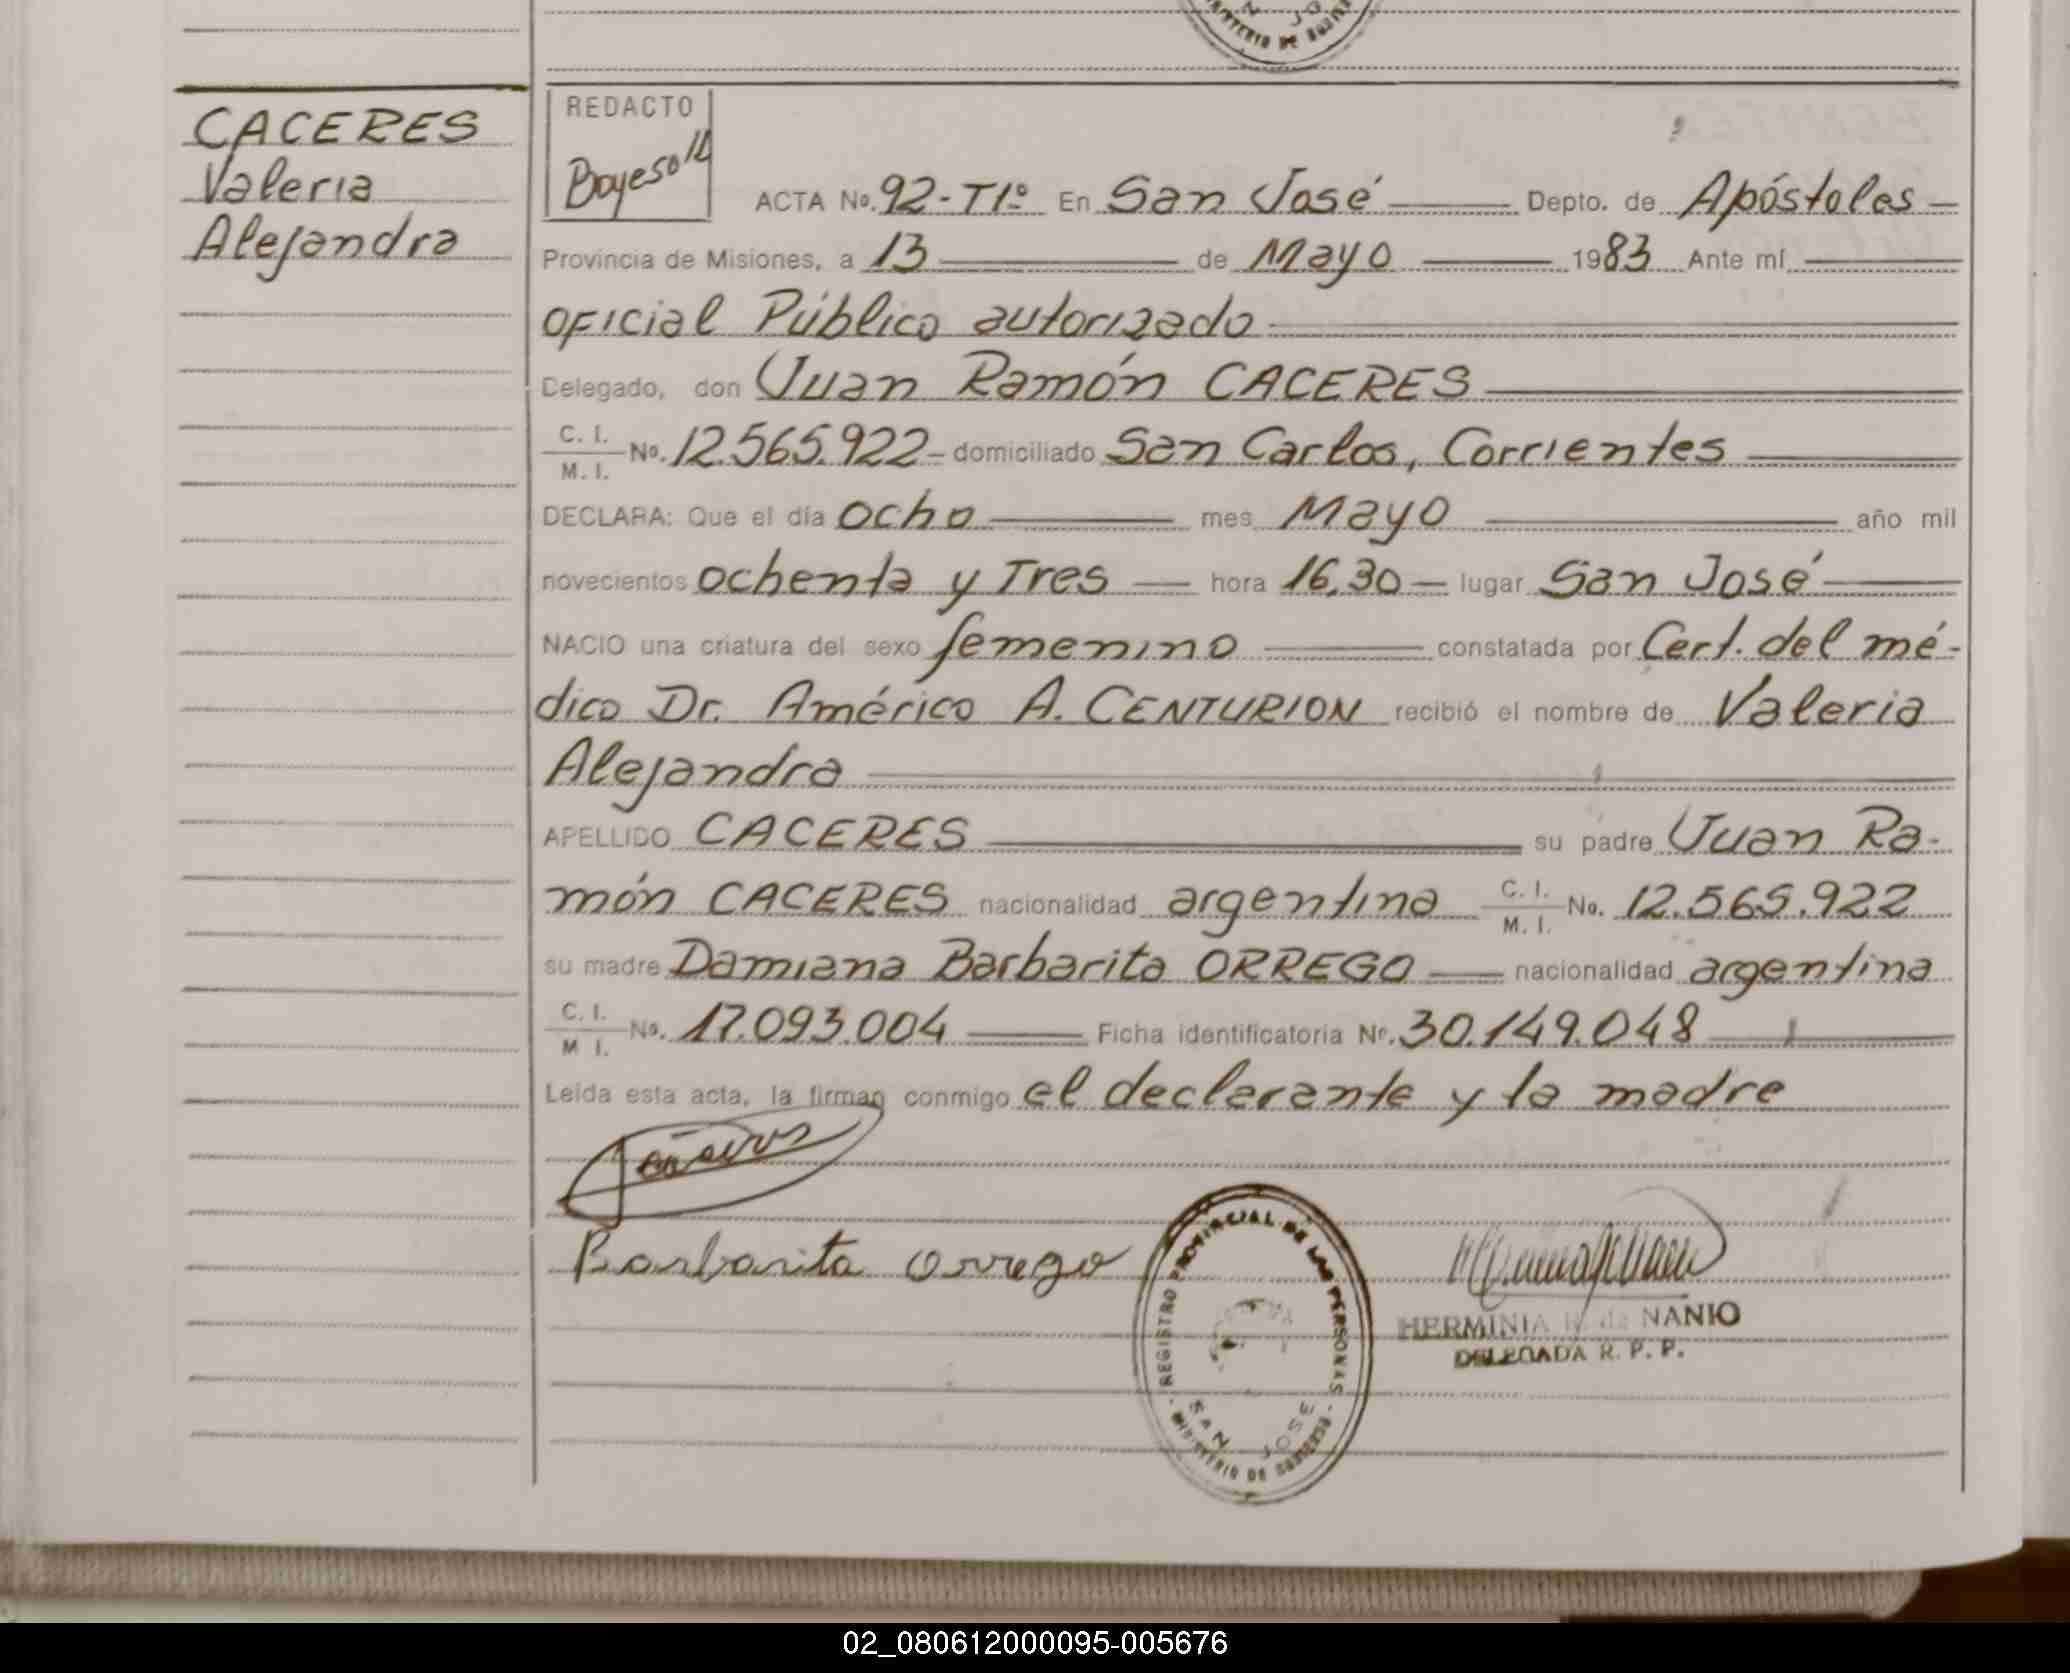 CACERES
Valeria
Alejandra
REDACTO
ACTA No. 92-T1º En San José Depto. de Apóstoles
Provincia de Misiones, a 13 de Mayo 1983 Ante mí
oficial Público autorizado
Delegado, don Juan Ramón CACERES
C. I. / M. I. No. 12.565.922 - domiciliado San Carlos, Corrientes
DECLARA: Que el día ocho mes Mayo año mil
novecientos ochenta y Tres hora 16,30 lugar San José
NACIO una criatura del sexo femenino constatada por Cert. del mé-
dico Dr. Américo A. CENTURION recibió el nombre de Valeria
Alejandra
APELLIDO CACERES su padre Juan Ra-
món CACERES nacionalidad argentina C. I. / M. I. No. 12.565.922
su madre Damiana Barbarita ORREGO nacionalidad argentina
C. I. / M I. No. 17.093.004 Ficha identificatoria Nº. 30.149.048
Leída esta acta, la firman conmigo el declarante y la madre
Barbarita Orrego
REGISTRO PROVINCIAL DE LAS PERSONAS
SAN JOSE
MINISTERIO DE GOBIERNO
HERMINIA de NANIO
DELEGADA R. P. P.
02_080612000095-005676